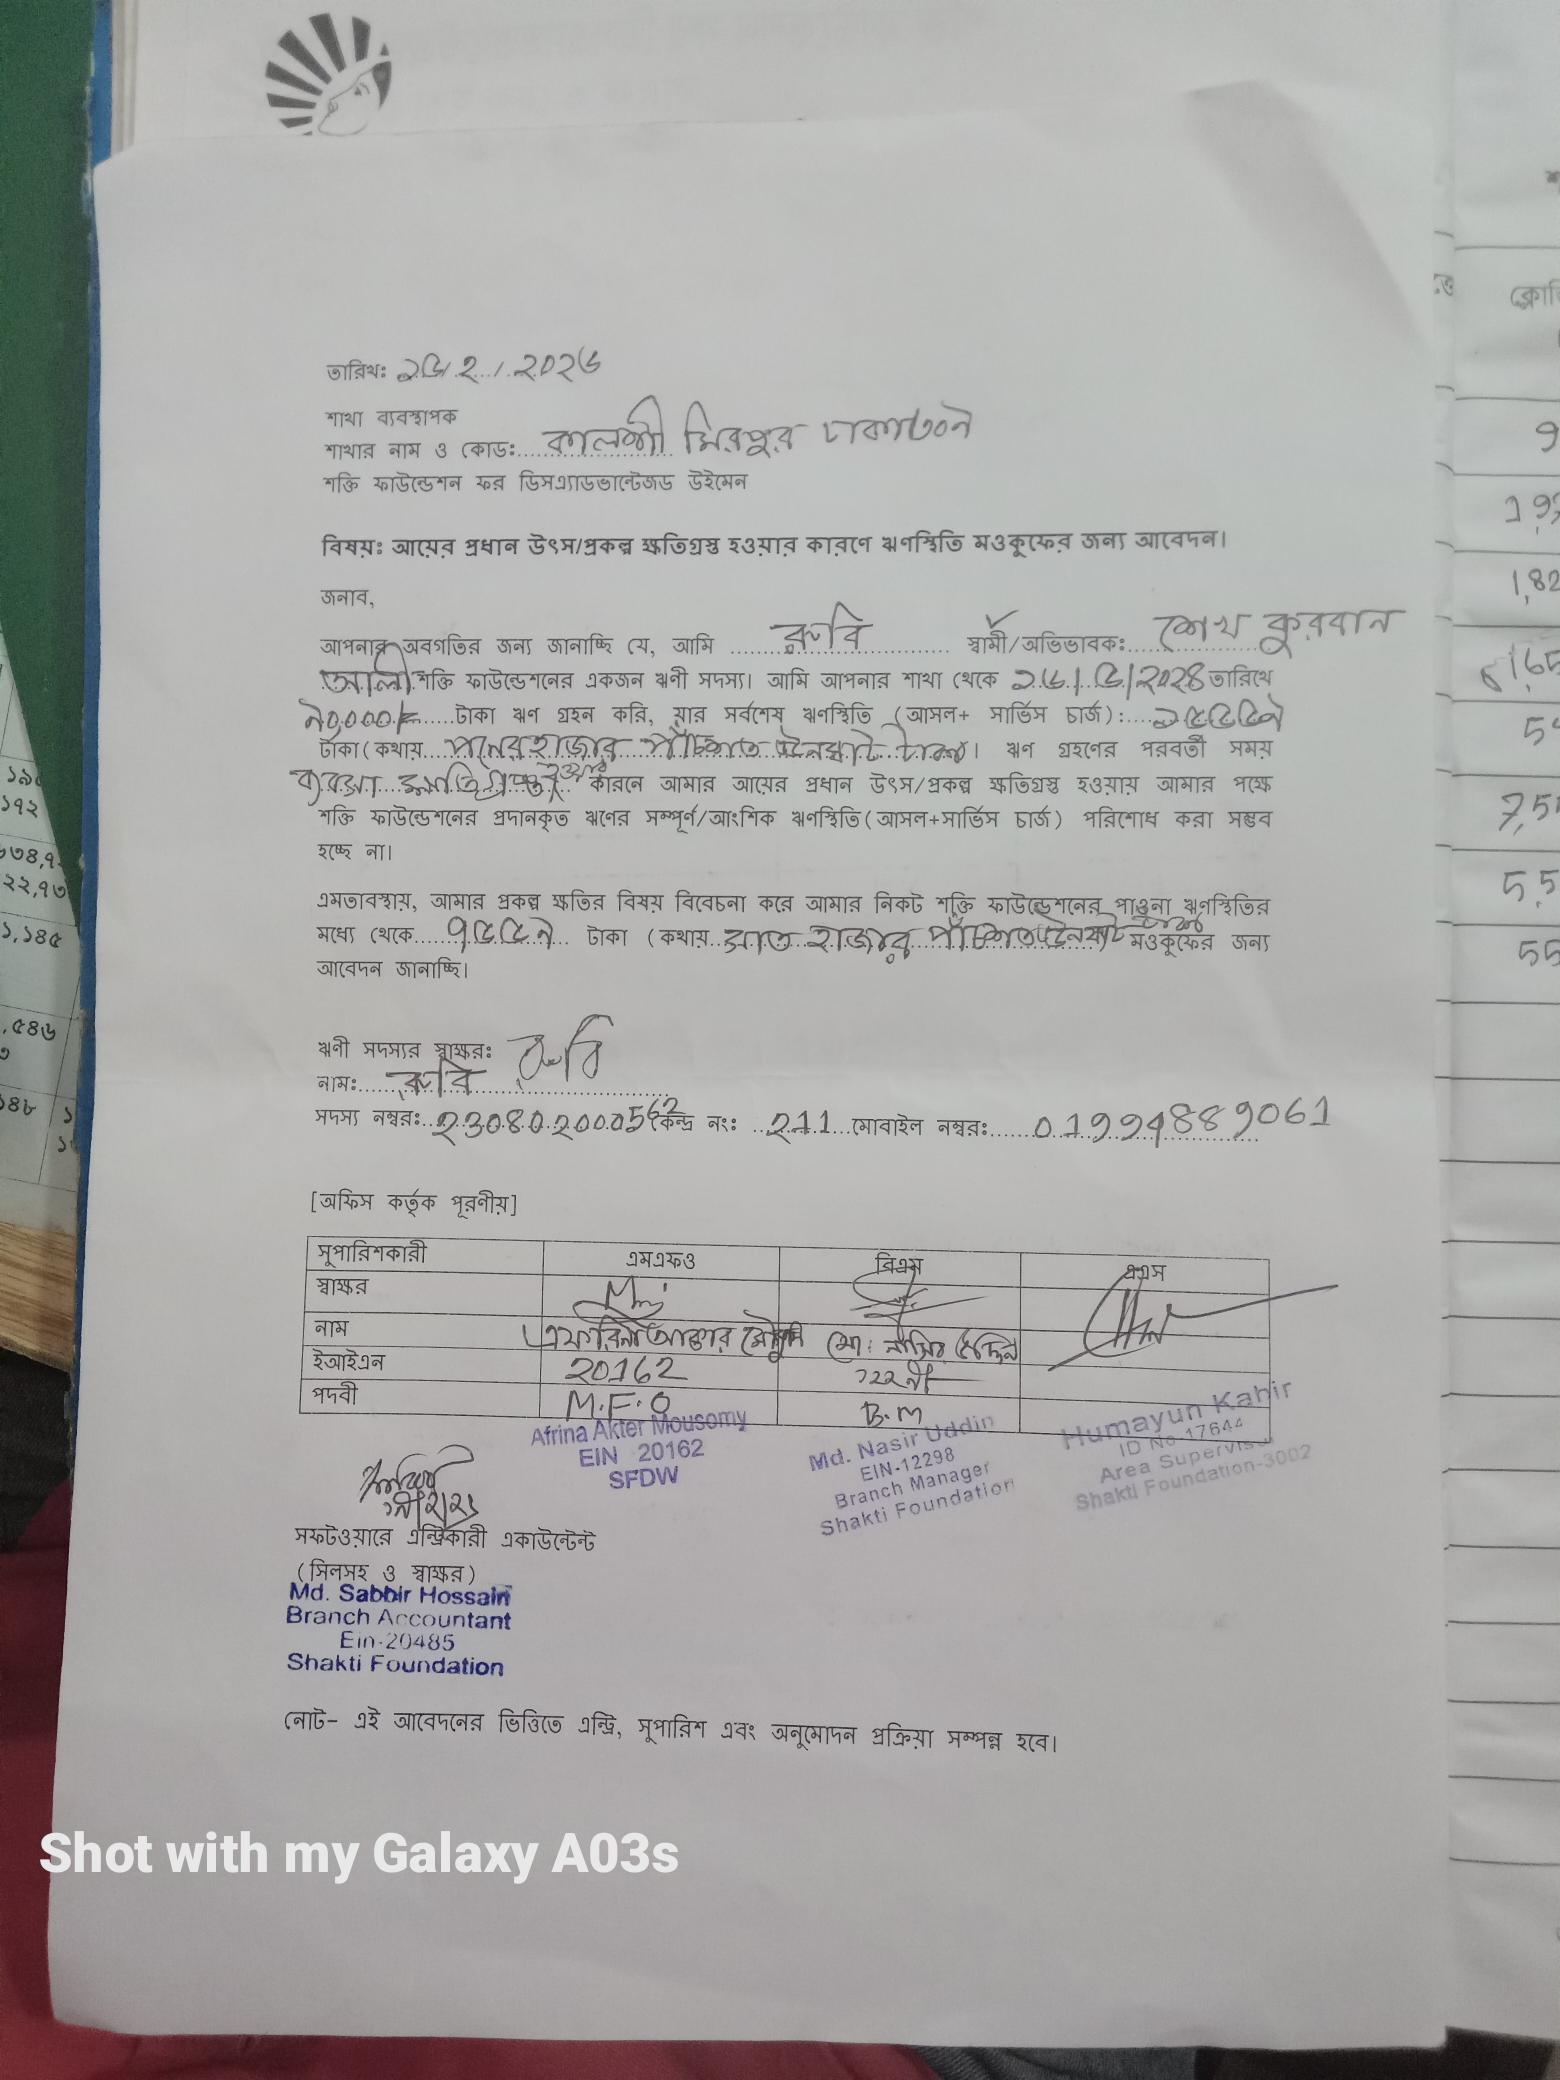 তারিখঃ ১৫/২/২০২৬
শাখা ব্যবস্থাপক
শাখার নাম ও কোডঃ কালশী মিরপুর ঢাকা
শক্তি ফাউন্ডেশন ফর ডিসএ্যাডভান্টেজড উইমেন
বিষয়ঃ আয়ের প্রধান উৎস/প্রকল্প ক্ষতিগ্রস্ত হওয়ার কারণে ঋণস্থিতি মওকুফের জন্য আবেদন।
জনাব,
আপনার অবগতির জন্য জানাচ্ছি যে, আমি রুবি স্বামী/অভিভাবকঃ শেখ কুরবান
আলী শক্তি ফাউন্ডেশনের একজন ঋণী সদস্য। আমি আপনার শাখা থেকে ১৬/৫/২০২৪ তারিখে
৯০,০০০/= টাকা ঋণ গ্রহন করি, যার সর্বশেষ ঋণস্থিতি (আসল+ সার্ভিস চার্জ)ঃ ১৫৫৫৯
টাকা (কথায় পনের হাজার পাঁচশত উনষাট টাকা। ঋণ গ্রহণের পরবর্তী সময়
ব্যবসা ক্ষতিগ্রস্ত হওয়ার কারনে আমার আয়ের প্রধান উৎস/প্রকল্প ক্ষতিগ্রস্ত হওয়ায় আমার পক্ষে
শক্তি ফাউন্ডেশনের প্রদানকৃত ঋণের সম্পূর্ণ/আংশিক ঋণস্থিতি(আসল+সার্ভিস চার্জ) পরিশোধ করা সম্ভব
হচ্ছে না।
এমতাবস্থায়, আমার প্রকল্প ক্ষতির বিষয় বিবেচনা করে আমার নিকট শক্তি ফাউন্ডেশনের পাওনা ঋণস্থিতির
মধ্যে থেকে ৭৫৫৯ টাকা (কথায় সাত হাজার পাঁচশত উনষাট টাকা মওকুফের জন্য
আবেদন জানাচ্ছি।
ঋণী সদস্যর স্বাক্ষরঃ রুবি
নামঃ রুবি
সদস্য নম্বরঃ 230802000562 কেন্দ্র নংঃ 211 মোবাইল নম্বরঃ 01994889061
[অফিস কর্তৃক পূরণীয়]
সুপারিশকারী এমএফও বিএম এএস
স্বাক্ষর
নাম আফরিনা আক্তার মৌসুমি মোঃ নাসির উদ্দিন
ইআইএন 20162 ১২২৯৮
পদবী M.F.O B.M
Afrina Akter Mousomy
EIN 20162
SFDW
Md. Nasir Uddin
EIN-12298
Branch Manager
Shakti Foundation
Humayun Kabir
ID No-17644
Area Supervisor
Shakti Foundation-3002
সফটওয়ারে এন্ট্রিকারী একাউন্টেন্ট
(সিলসহ ও স্বাক্ষর)
Md. Sabbir Hossain
Branch Accountant
Ein-20485
Shakti Foundation
নোট- এই আবেদনের ভিত্তিতে এন্ট্রি, সুপারিশ এবং অনুমোদন প্রক্রিয়া সম্পন্ন হবে।
Shot with my Galaxy A03s